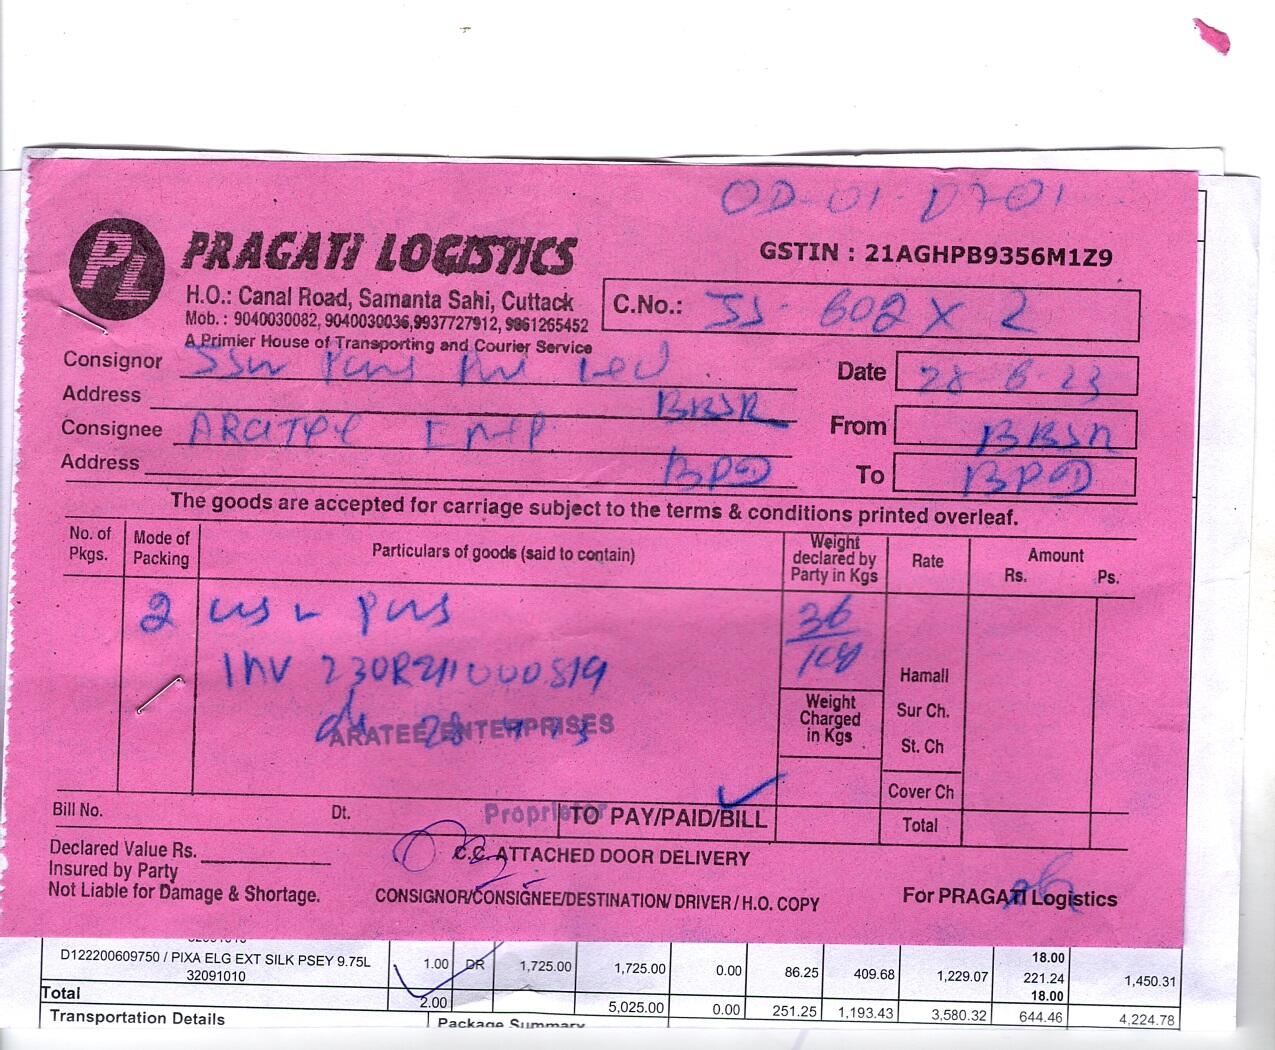 OD-01-D701
PL
PRAGATI LOGISTICS
GSTIN : 21AGHPB9356M1Z9
H.O.: Canal Road, Samanta Sahi, Cuttack
Mob.: 9040030082, 9040030036,9937727912, 9861265452
A Primier House of Transporting and Courier Service
C.No.: JJ- 602 X 2
Consignor
Date 28-6-23
Address BBSR
Consignee
From BBSR
Address BPD
To BPD
The goods are accepted for carriage subject to the terms & conditions printed overleaf.
No. of Pkgs.
Mode of Packing
Particulars of goods (said to contain)
Weight declared by Party in Kgs
Rate
Amount
Rs. Ps.
2
36
INV 230R211000819
Hamall
ARATEE ENTERPRISES
Weight Charged in Kgs
Sur Ch.
St. Ch
Cover Ch
Bill No. Dt. Proprietor TO PAY/PAID/BILL
Total
Declared Value Rs.
C.C. ATTACHED DOOR DELIVERY
Insured by Party
Not Liable for Damage & Shortage.
CONSIGNOR/CONSIGNEE/DESTINATION/ DRIVER / H.O. COPY
For PRAGATI Logistics
D122200609750 / PIXA ELG EXT SILK PSEY 9.75L 1.00 DR 1,725.00 1,725.00 0.00 86.25 409.68 1,229.07 18.00 221.24 1,450.31
32091010
18.00
Total 2.00 5,025.00 0.00 251.25 1,193.43 3,580.32 644.46 4,224.78
Transportation Details
Package Summary